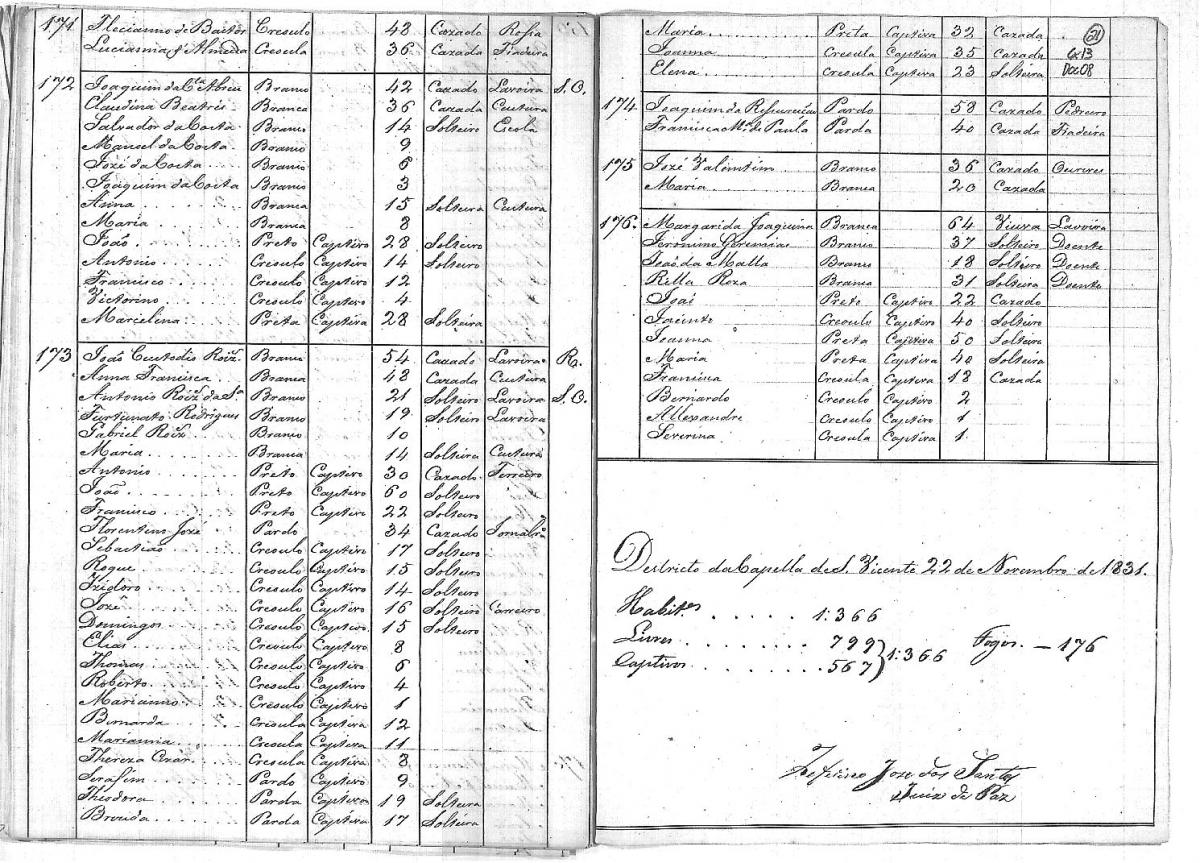 171 Feliciano de Bastos Creoulo 48 Cazado Rosa
Lucianna d'Almeida Creoula 36 Cazada Fiadeira
172 Joaquim da Cta Abreu Branco 42 Cazado Lavoira S. O.
Claudina Beatris Branca 36 Cazada Custura
Salvador da Costa Branco 14 Solteiro Escola
Manoel da Costa Branco 9
José da Costa Branco 6
Joaquim da Costa Branco 3
Anna Branca 15 Solteira Custura
Maria Branca 8
João Preto Captivo 28 Solteiro
Antonio Creoulo Captivo 14 Solteiro
Francisco Creoulo Captivo 12
Victorino Creoulo Captivo 4
Marcelina Preta Captiva 28 Solteira
173 João Custodio Roiz Branco 54 Cazado Lavoira R.
Anna Francisca Branca 48 Cazada Custura
Antonio Roiz da Sa Branco 21 Solteiro Lavoira S. O.
Furtunato Rodrigues Branco 19 Solteiro Lavoira
Gabriel Roiz Branco 10
Maria Branca 14 Solteira Custura
Antonio Preto Captivo 30 Cazado Ferreiro
João Preto Captivo 60 Solteiro
Francisco Preto Captivo 22 Solteiro
Florentino José Pardo 34 Cazado Jornalro
Sebastião Creoulo Captivo 17 Solteiro
Roque Creoulo Captivo 15 Solteiro
Izidoro Creoulo Captivo 14 Solteiro
José Creoulo Captivo 16 Solteiro Carreiro
Domingos Creoulo Captivo 15 Solteiro
Elias Creoulo Captivo 8
Thomas Creoulo Captivo 6
Roberto Creoulo Captivo 4
Marianno Creoulo Captivo 1
Bernarda Creoula Captiva 12
Marianna Creoula Captiva 11
Thereza Creoula Captiva 8
Serafim Pardo Captivo 9
Theodora Parda Captiva 19 Solteira
Brouda Parda Captiva 17 Solteira
Maria Preta Captiva 32 Cazada
Joanna Creoula Captiva 35 Cazada
Elena Creoula Captiva 23 Solteira
21
Cx13
Doc08
174 Joaquim da Resurreicão Pardo 58 Cazado Pedreiro
Francisca Ma de Paula Parda 40 Cazada Fiadeira
175 José Valintim Branco 36 Cazado Ourives
Maria Branca 20 Cazada
176. Margarida Joaquina Branca 64 Viuva Lavoira
Jeronimo Geremias Branco 37 Solteiro Doente
João da Malla Branco 18 Solteiro Doente
Ritta Roza Branca 31 Solteira Doente
José Preto Captivo 22 Cazado
Jacinto Creoulo Captivo 40 Solteiro
Joanna Preta Captiva 50 Solteira
Maria Preta Captiva 40 Solteira
Francisca Creoula Captiva 18 Cazada
Bernardo Creoulo Captivo 2
Allexandre Creoulo Captivo 1
Severina Creoula Captiva 1
Destricto da Capella de S. Vicente 22 de Novembro de 1831.
Habites 1:366
Livres 799
Captivos 567 } 1:366 Fogos — 176
Zeferino Joze dos Santos
Juiz de Paz